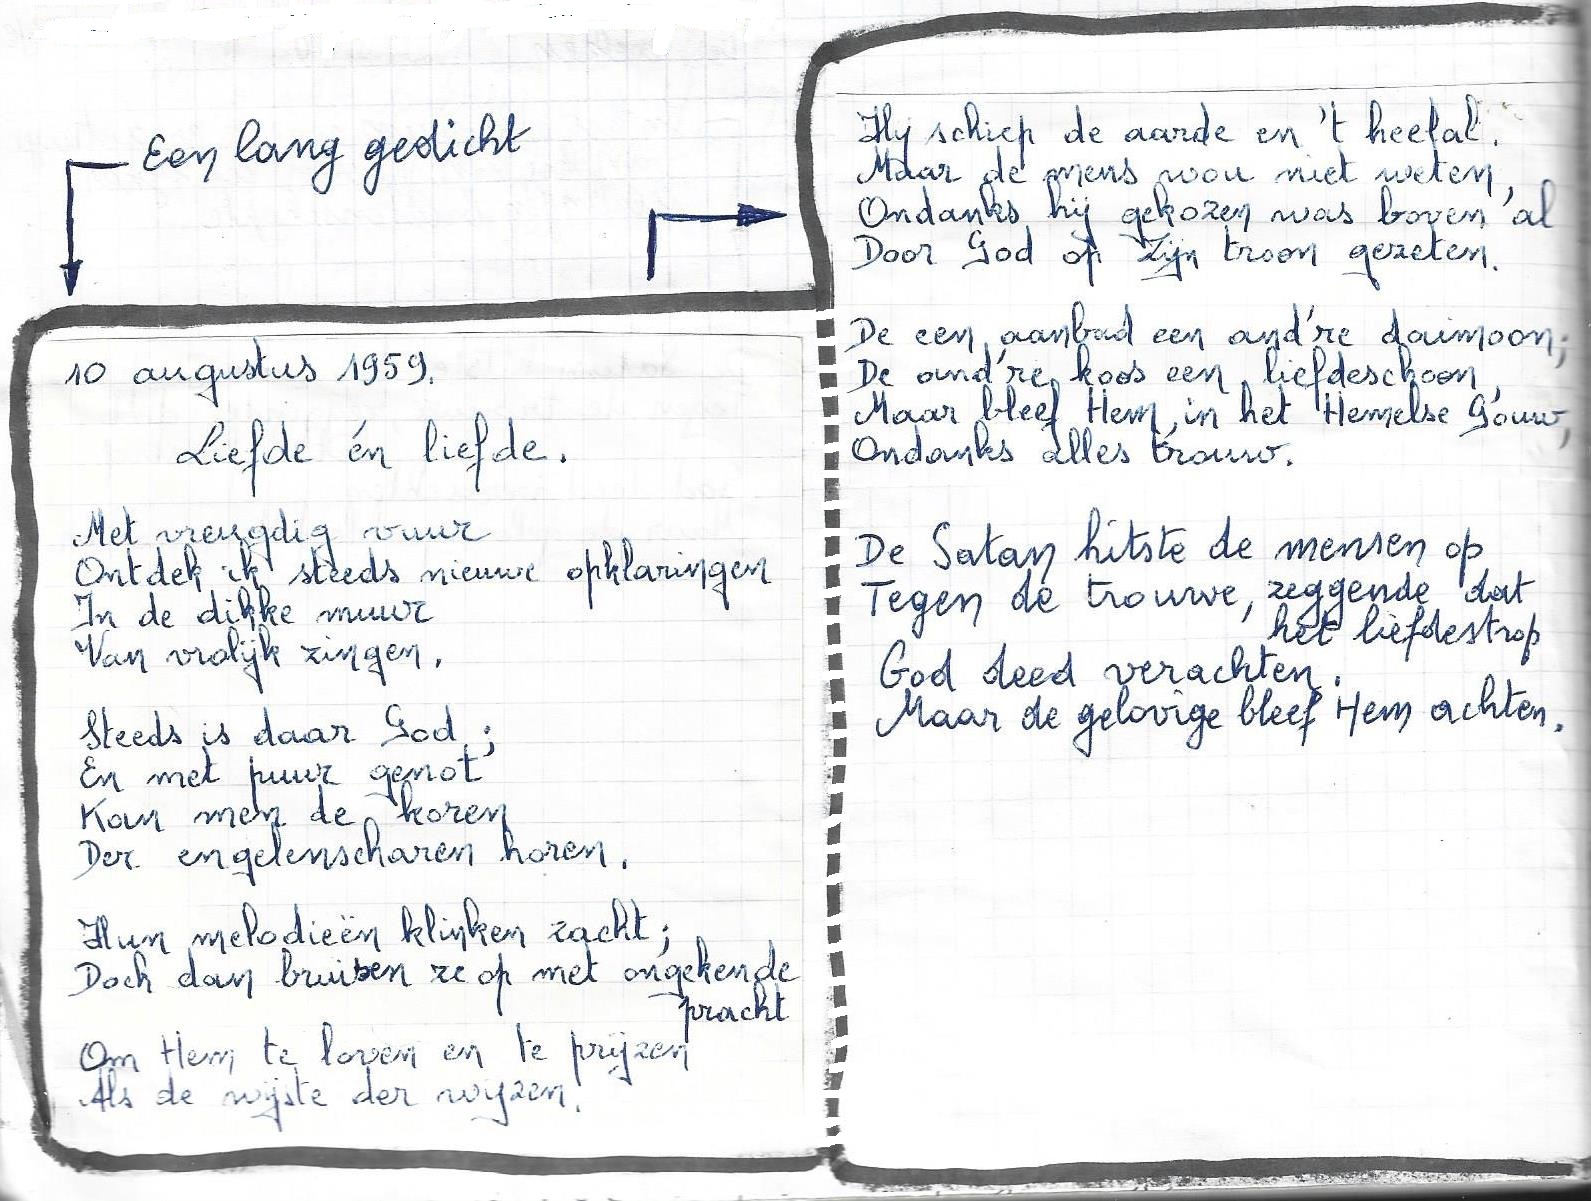 Een lang gedicht
10 augustus 1959.
Liefde én liefde.
Met vreugdig vuur
Ontdek ik steeds nieuwe opklaringen
In de dikke muur
Van vrolijk zingen.
Steeds is daar God;
En met puur genot
Kan men de koren
Der engelenscharen horen.
Hun melodieën klinken zacht;
Doch dan bruisen ze op met ongekende
pracht
Om Hem te loven en te prijzen
Als de wijste der wijzen.
Hij schiep de aarde en 't heelal.
Maar de mens wou niet weten,
Ondanks hij gekozen was boven al
Door God op Zijn troon gezeten.
De een aanbad een and're daimoon;
De and're koos een liefdeschoon,
Maar bleef Hem, in het Hemelse Gouw,
Ondanks alles trouw.
De Satan hitste de mensen op
Tegen de trouwe, zeggende dat
het liefdestrop
God deed verachten.
Maar de gelovige bleef Hem achten.